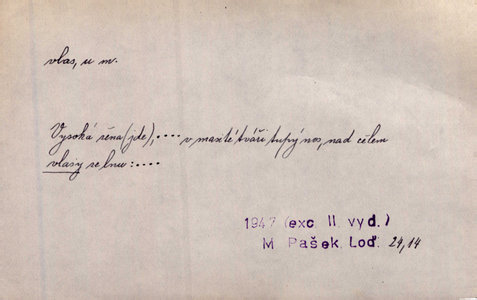 vlas, u m.
Vysoká žena (jde), .... v masité tváři tupý nos, nad čelem
vlasy ze lnu: ....
1947 (exc. II. vyd.)
M. Pašek, Loď. 24,14